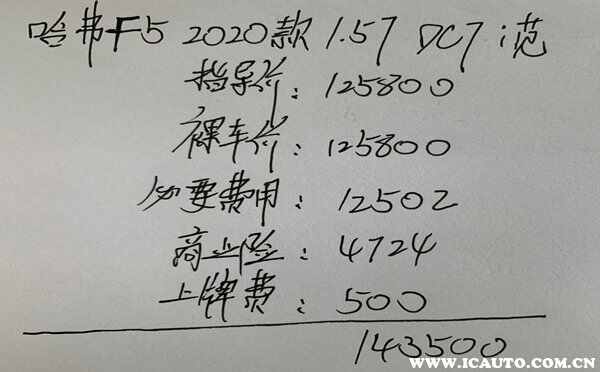 哈弗F5 2020款 1.5T DCT i范
指导价：125800
裸车价：125800
必要费用：12502
商业险：4724
上牌费：500
143500
WWW.ICAUTO.COM.CN